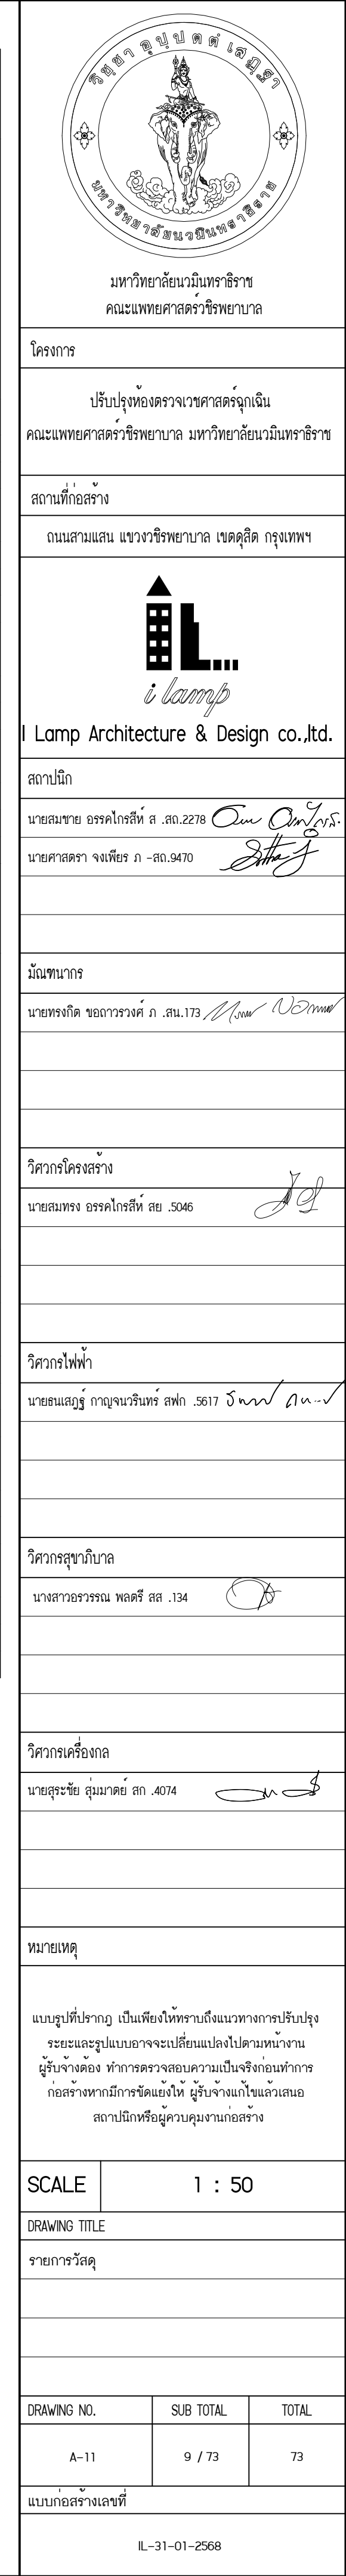 วิชฺชา อุปฺปตตํ เสฏฺฐา
มหาวิทยาลัยนวมินทราธิราช
มหาวิทยาลัยนวมินทราธิราช
คณะแพทยศาสตร์วชิรพยาบาล
โครงการ
ปรับปรุงห้องตรวจเวชศาสตร์ฉุกเฉิน
คณะแพทยศาสตร์วชิรพยาบาล มหาวิทยาลัยนวมินทราธิราช
สถานที่ก่อสร้าง
ถนนสามแสน แขวงวชิรพยาบาล เขตดุสิต กรุงเทพฯ
i lamp
I Lamp Architecture & Design co.,ltd.
สถาปนิก
นายสมชาย อรรคไกรสีห์ ส .สถ.2278
นายศาสตรา จงเพียร ภ -สถ.9470
มัณฑนากร
นายทรงกิต ขอถาวรวงศ์ ภ .สน.173
วิศวกรโครงสร้าง
นายสมทรง อรรคไกรสีห์ สย .5046
วิศวกรไฟฟ้า
นายธนเสฎฐ์ กาญจนวรินทร์ สฟก .5617
วิศวกรสุขาภิบาล
นางสาวอรวรรณ พลดรี สส .134
วิศวกรเครื่องกล
นายสุระชัย สุ่มมาตย์ สก .4074
หมายเหตุ
แบบรูปที่ปรากฎ เป็นเพียงให้ทราบถึงแนวทางการปรับปรุง
ระยะและรูปแบบอาจจะเปลี่ยนแปลงไปตามหน้างาน
ผู้รับจ้างต้อง ทำการตรวจสอบความเป็นจริงก่อนทำการ
ก่อสร้างหากมีการขัดแย้งให้ ผู้รับจ้างแก้ไขแล้วเสนอ
สถาปนิกหรือผู้ควบคุมงานก่อสร้าง
SCALE 1 : 50
DRAWING TITLE
รายการวัสดุ
DRAWING NO. SUB TOTAL TOTAL
A-11 9 / 73 73
แบบก่อสร้างเลขที่
IL-31-01-2568